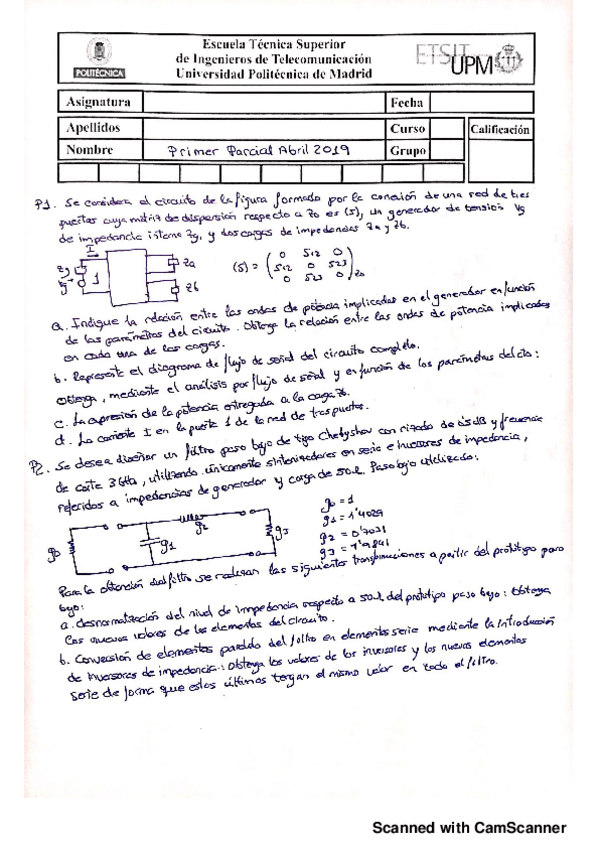 Escuela Técnica Superior
de Ingenieros de Telecomunicación
Universidad Politécnica de Madrid
POLITÉCNICA
ETSIT UPM
Asignatura
Fecha
Apellidos
Curso
Calificación
Nombre Primer Parcial Abril 2019
Grupo
P1. Se considera el circuito de la figura formado por la conexión de una red de tres
puertas cuya matriz de dispersión respecto a Zo es (S), un generador de tensión Vg
de impedancia interna Zg, y dos cargas de impedancias Za y Zb.
I
Zg
Vg
1
Za
Zb
(S) = ( 0 S12 0
S12 0 S23
0 S23 0 ) Zo
a. Indique la relación entre las ondas de potencia implicadas en el generador en función
de los parámetros del circuito. Obtenga la relación entre las ondas de potencia implicadas
en cada una de las cargas.
b. Represente el diagrama de flujo de señal del circuito completo.
Obtenga, mediante el análisis por flujo de señal y en función de los parámetros del cto:
c. La expresión de la potencia entregada a la carga Zb.
d. La corriente I en la puerta 1 de la red de tres puertas.
P2. Se desea diseñar un filtro paso bajo de tipo Chebyshev con rizado de 0'5 dB y frecuencia
de corte 3 GHz, utilizando únicamente en serie e inversores de impedancia,
referidos a impedancias de generador y carga de 50 Ω. Paso bajo utilizado:
g0
g1
g2
g3
g0 = 1
g1 = 1'4029
g2 = 0'7071
g3 = 1'9841
Para la obtención del filtro se realizan las siguientes transformaciones a partir del prototipo paso
bajo:
a. desnormalización del nivel de impedancia respecto a 50 Ω del prototipo paso bajo: Obtenga
los nuevos valores de los elementos del circuito.
b. Conversión de elementos paralelo del filtro en elementos serie mediante la introducción
de inversores de impedancia: Obtenga los valores de los inversores y los nuevos elementos
serie de forma que estos últimos tengan el mismo valor en todo el filtro.
Scanned with CamScanner